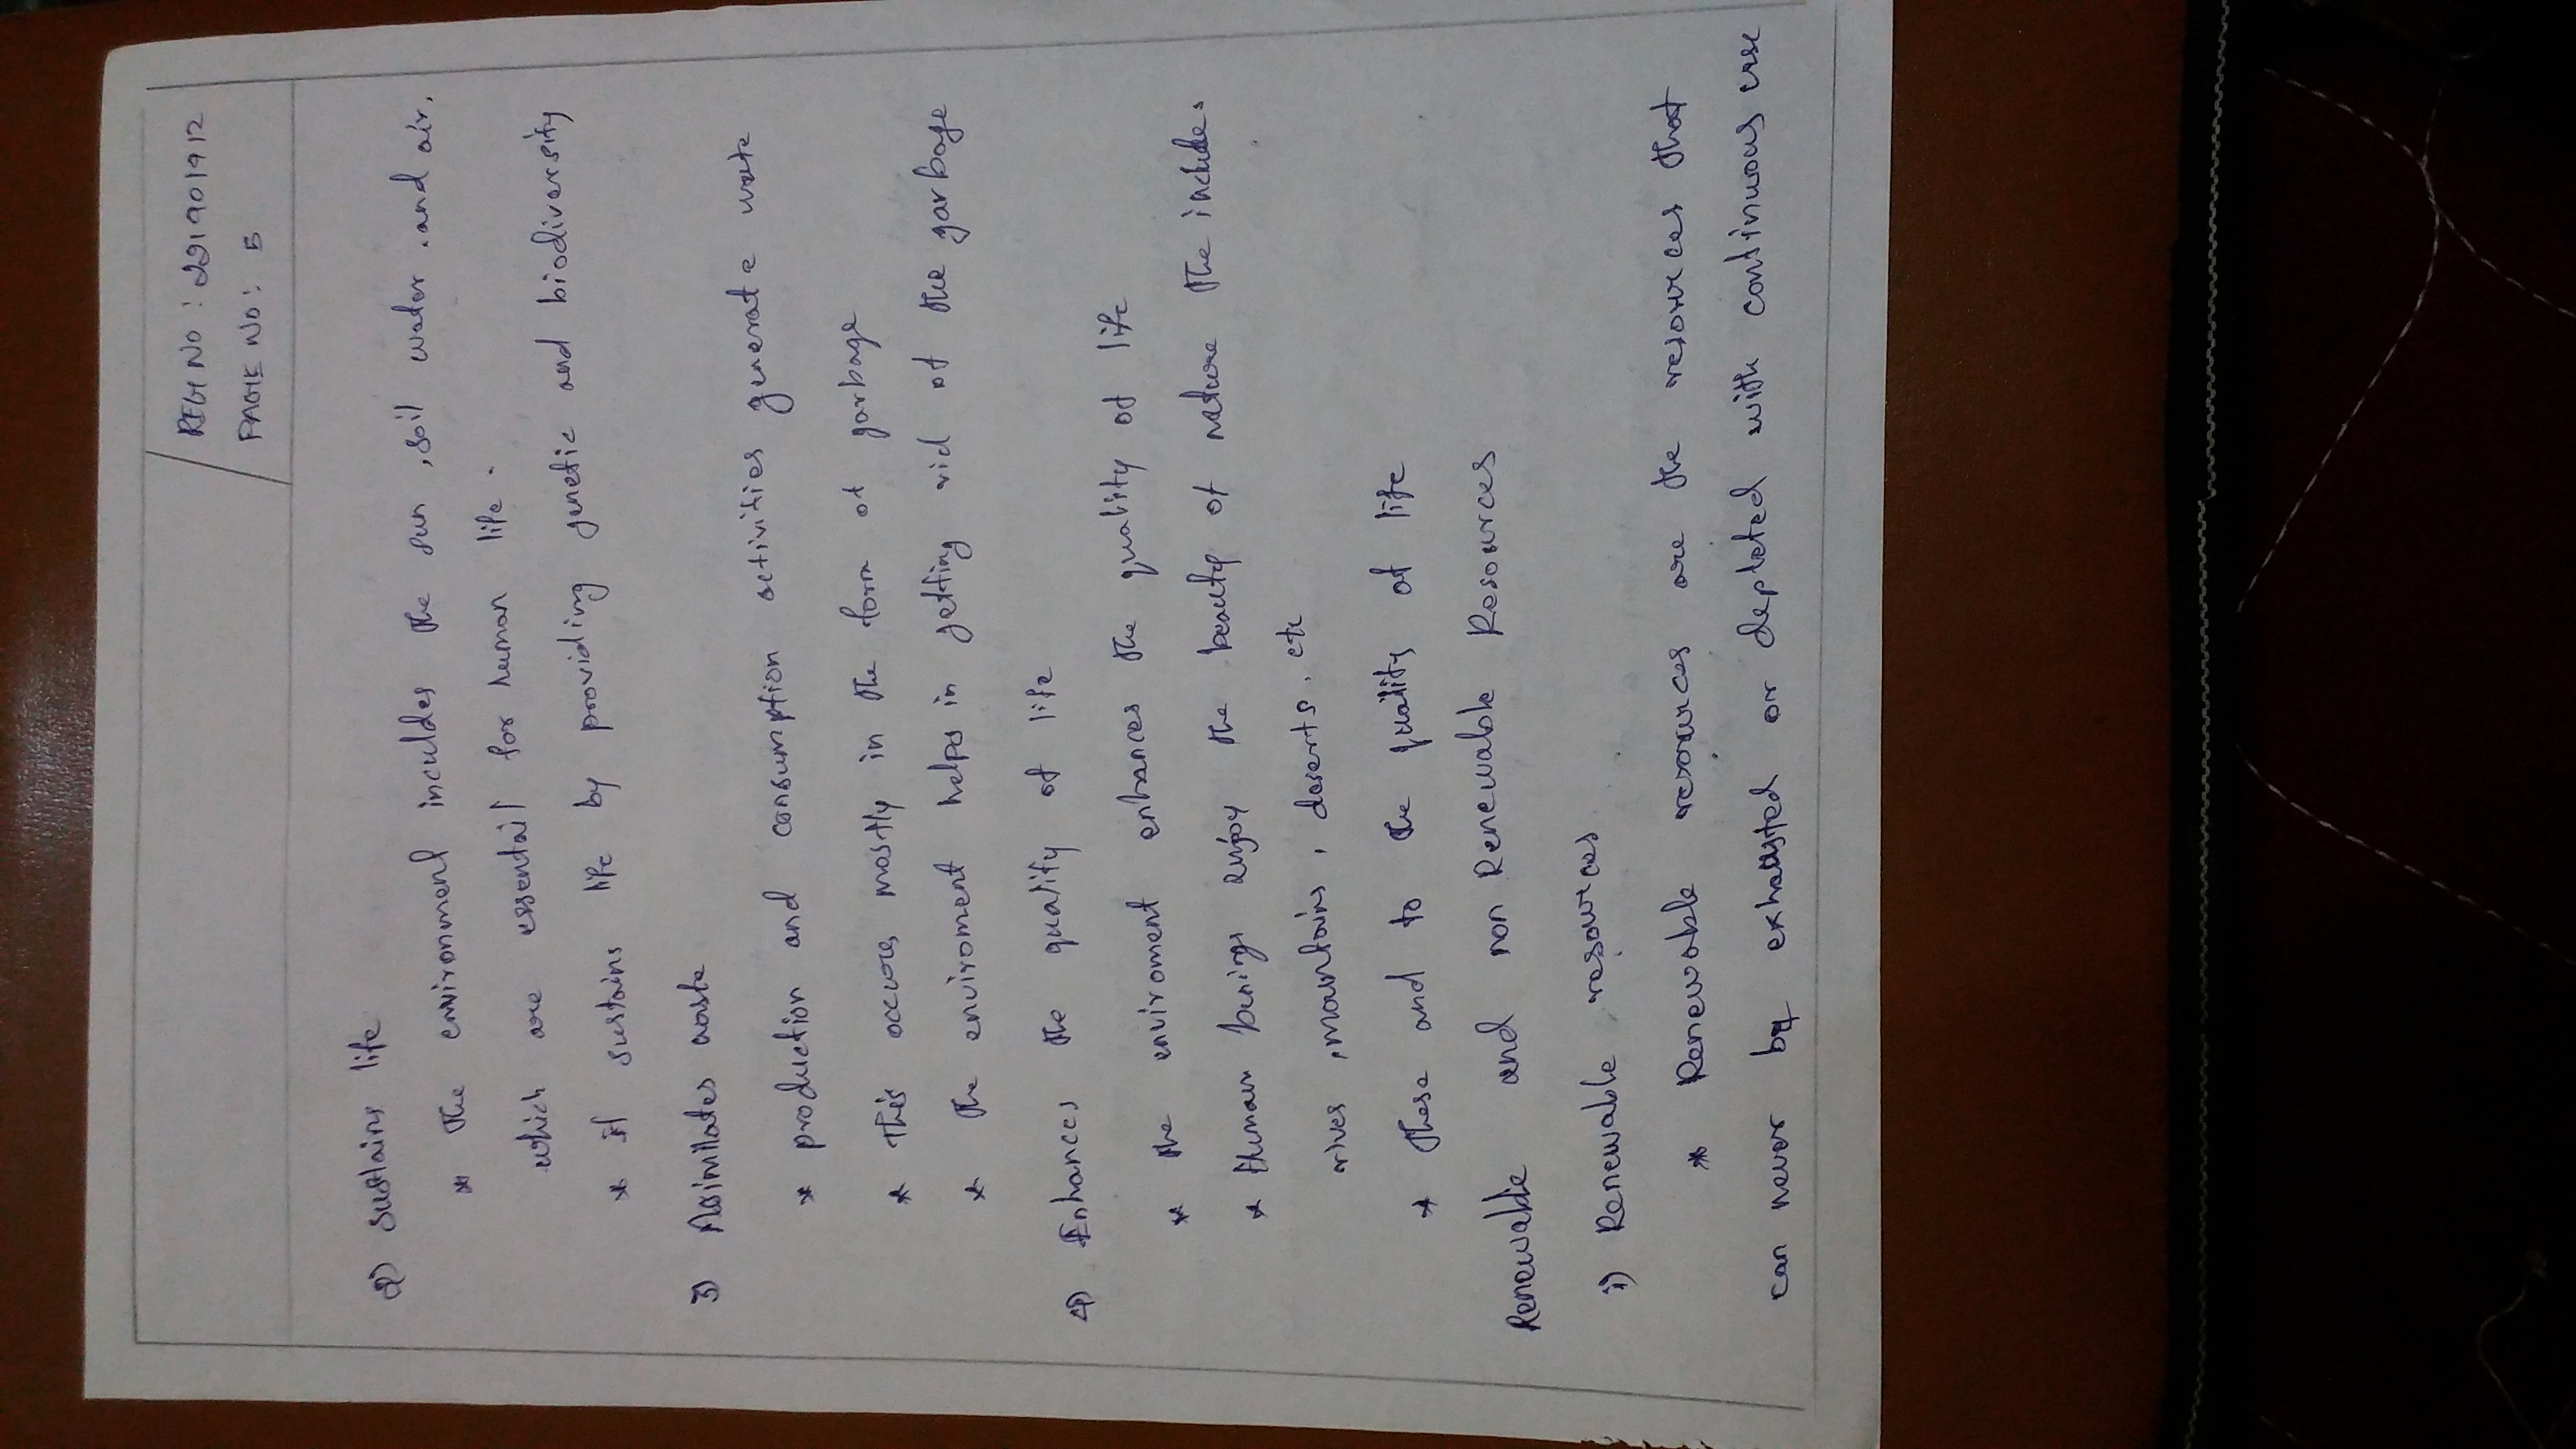 REG NO : 221901912
PAGE NO : 5
2) Sustains life
* The environment inculdes the sun , soil water . and air .
which are essentail for human life .
* it sustains life by providing genetic and biodiversity
3) Assimilates waste
* production and consumption activities generate waste
* This occures mostly in the form of garbage
* The enviroment helps in getting rid of the garbage
4) Enhances the quality of life
* the enviroment enhances the quality of life
* Human benings enjoy the beauty of nature the includes
rives , mountains , deserts , etc
* These and to the quality of life
Renewable and non Renewable Resources
i) Renewable resources
* Renewable resources are the resources that
can never be exhausted or depleted with continuous use